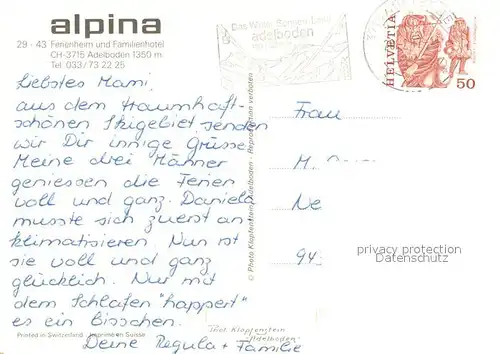 alpina
29 - 43 Ferienheim und Familienhotel
CH-3715 Adelboden 1350 m
Tel 033/73 22 25
Das Winter
adelboden
HELVETIA
50
Liebstes Mami,
aus dem traumhaft-
schönen Skigebiet senden
wir Dir innige Grüsse
Meine drei Männer
geniessen die Ferien
voll und ganz. Daniela
musste sich zuerst an
klimatisieren. Nun ist
sie voll und ganz
glücklich. Nur mit
dem Schlafen "happert"
es ein Bisschen.
Deine Regula + Familie
Frau
M.
Ne
94
privacy protection
Datenschutz
© Photo Klopfenstein Adelboden - Reproduktion verboten
Printed in Switzerland Imprimé en Suisse
Phot. Klopfenstein
Adelboden